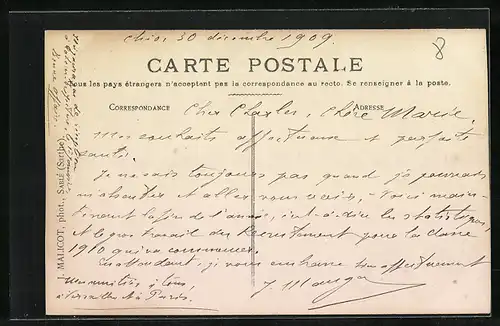 30 décembre 1909
8
CARTE POSTALE
Tous les pays étrangers n'acceptent pas la correspondance au recto. Se renseigner à la poste.
CORRESPONDANCE
ADRESSE
Cher Charles, Chère Marie,
Mes souhaits affectueux et parfaite
santé.
Je ne sais toujours pas quand je pourrais
et aller vous voir. Voici main-
tenant la fin de l'année, c'est-à-dire les
et le gros travail du Recrutement pour la classe
1910 qui va commencer.
En attendant, je vous embrasse bien affectueusement
Mes amitiés à tous,
à Versailles et à Paris.
J.
J. MALICOT, phot., SABLÉ (Sarthe)